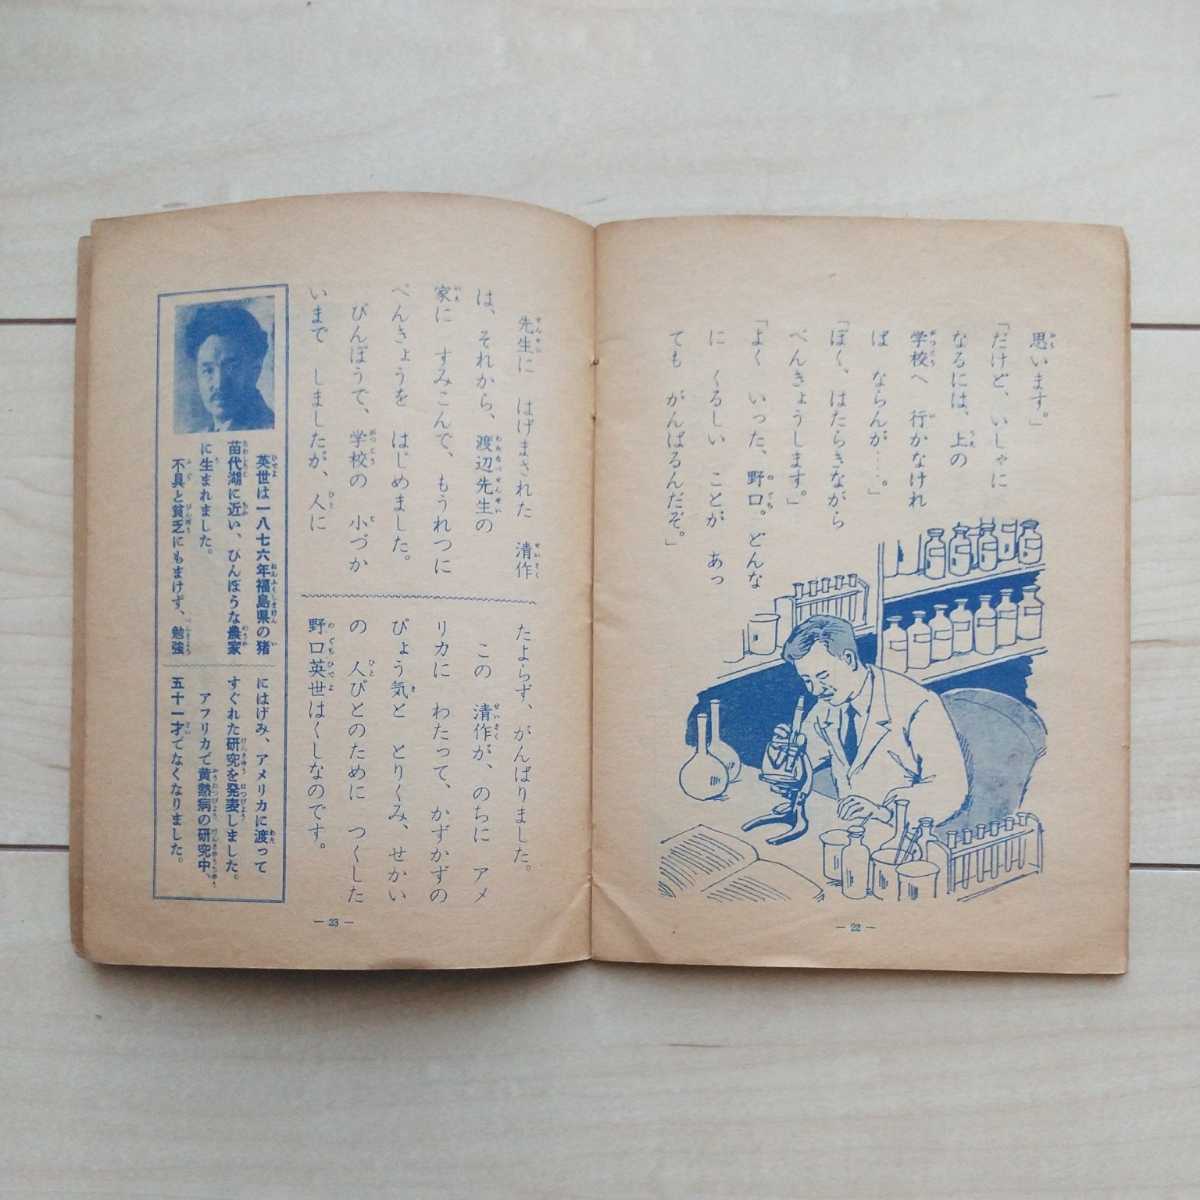 思います。」
「だけど、いしゃに
なるには、上の
学校へ 行かなけれ
ば ならんが……。」
「ぼく、はたらきながら
べんきょうします。」
「よく いった、野口。どんな
に くるしい ことが あっ
ても がんばるんだぞ。」
— 22 —
先生に はげまされた 清作
は、それから、渡辺先生の
家に すみこんで、もうれつに
べんきょうを はじめました。
びんぼうで、学校の 小づか
いまで しましたが、人に
たよらず、がんばりました。
この 清作が、のちに アメ
リカに わたって、かずかずの
びょう気と とりくみ、せかい
の 人びとのために つくした
野口英世はくしなのです。
英世は一八七六年福島県の猪
苗代湖に近い、びんぼうな農家
に生まれました。
不具と貧乏にもまけず、勉強
にはげみ、アメリカに渡って
すぐれた研究を発表しました。
アフリカで黄熱病の研究中、
五十一才でなくなりました。
— 23 —